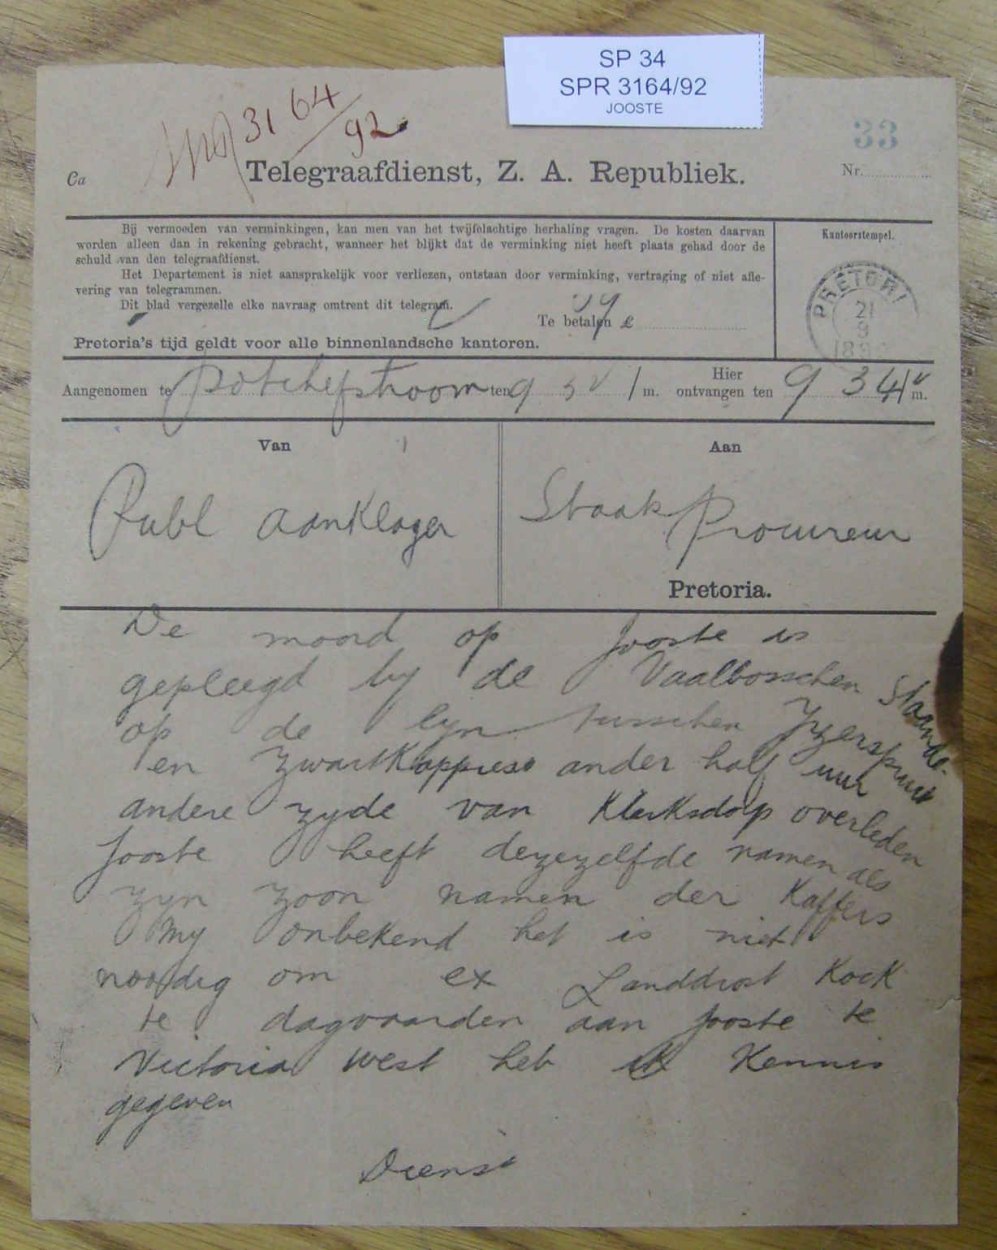 SP 34
SPR 3164/92
JOOSTE
3164/92
33
Ca
Telegraafdienst, Z. A. Republiek.
Nr.
Bij vermoeden van verminkingen, kan men van het twijfelachtige herhaling vragen. De kosten daarvan
worden alleen dan in rekening gebracht, wanneer het blijkt dat de verminking niet heeft plaats gehad door de
schuld van den telegraafdienst.
Het Departement is niet aansprakelijk voor verliezen, ontstaan door verminking, vertraging of niet afle-
vering van telegrammen.
Dit blad vergezelle elke navraag omtrent dit telegram.
Te betalen £
Pretoria's tijd geldt voor alle binnenlandsche kantoren.
Kantoorstempel.
PRETORI
21
9
Aangenomen te Potchefstroom ten 9 m. Hier ontvangen ten 9 34 m.
Van
Aan
Publ aanklager
Staats Procureur
Pretoria.
De moord op Jooste is
gepleegd by de Vaalbosschen Staande
op de lyn tusschen Yzerspruit
en Zwartkoppies ander half uur
andere zyde van Klerksdorp overleden
Jooste heeft dezezelfde namen als
zyn zoon namen der Kaffers
my onbekend het is niet
noodig om ex Landdrost Kock
te dagvaarden aan Jooste te
Victoria West heb ik Kennis
gegeven
Dienst